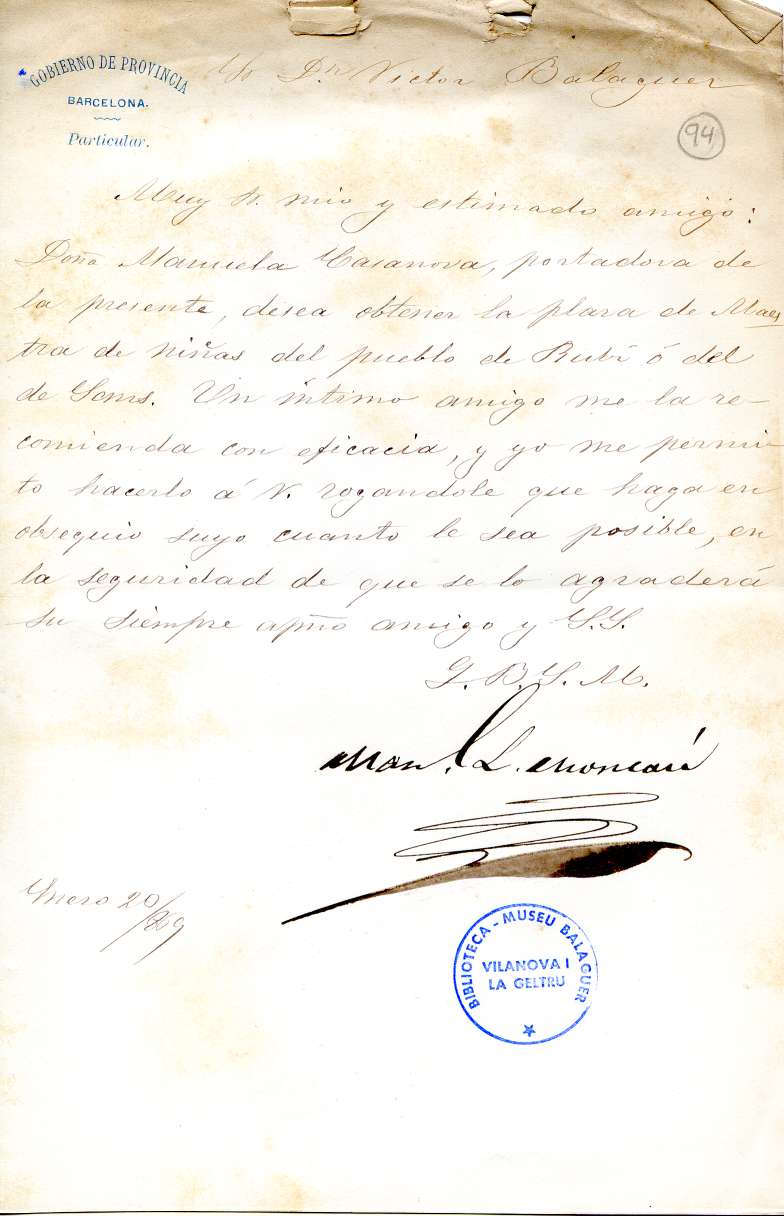 GOBIERNO DE PROVINCIA
BARCELONA.
Particular.
Sr Dn Victor Balaguer
94
Muy Sr. mio y estimado amigo:
Doña Manuela Casanova, portadora de
la presente, desea obtener la plaza de Maes
tra de niñas del pueblo de Rubí ó del
de Sans. Un íntimo amigo me la re-
comienda con eficacia, y yo me permi-
to hacerlo á V. rogandole que haga en
obsequio suyo cuanto le sea posible, en
la seguridad de que se lo agraderá
su siempre apmo amigo y S.S.
Q. B. S. M.
Man. L. Moncasi
Enero 20/869
BIBLIOTECA - MUSEU BALAGUER
VILANOVA I
LA GELTRU